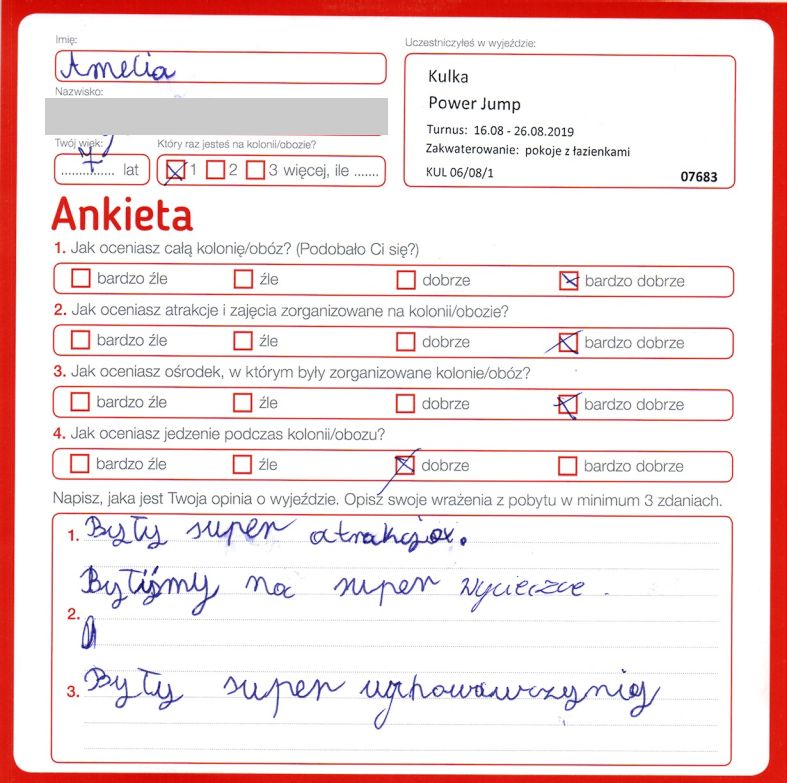 Imię:
Uczestniczyłeś w wyjeździe:
Amelia
Kulka
Nazwisko:
Power Jump
Turnus: 16.08 - 26.08.2019
Twój wiek:
Który raz jesteś na kolonii/obozie?
Zakwaterowanie: pokoje z łazienkami
7 lat
1 2 3 więcej, ile .......
KUL 06/08/1
07683
Ankieta
1. Jak oceniasz całą kolonię/obóz? (Podobało Ci się?)
bardzo źle źle dobrze bardzo dobrze
2. Jak oceniasz atrakcje i zajęcia zorganizowane na kolonii/obozie?
bardzo źle źle dobrze bardzo dobrze
3. Jak oceniasz ośrodek, w którym były zorganizowane kolonie/obóz?
bardzo źle źle dobrze bardzo dobrze
4. Jak oceniasz jedzenie podczas kolonii/obozu?
bardzo źle źle dobrze bardzo dobrze
Napisz, jaka jest Twoja opinia o wyjeździe. Opisz swoje wrażenia z pobytu w minimum 3 zdaniach.
1. Były super
Byliśmy na super wycieczce.
2.
3. Były super